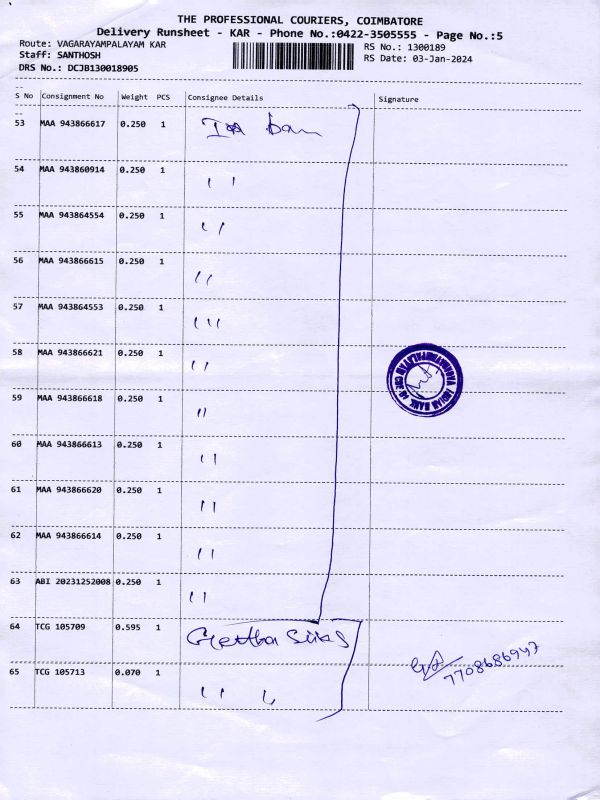 THE PROFESSIONAL COURIERS, COIMBATORE
Delivery Runsheet - KAR - Phone No.:0422-3505555 - Page No.:5
Route: VAGARAYAMPALAYAM KAR
RS No.: 1300189
Staff: SANTHOSH
RS Date: 03-Jan-2024
DRS No.: DCJB130018905
S No Consignment No Weight PCS Consignee Details Signature
53 MAA 943866617 0.250 1
54 MAA 943860914 0.250 1 ''
55 MAA 943864554 0.250 1 ''
56 MAA 943866615 0.250 1 ''
57 MAA 943864553 0.250 1 '''
58 MAA 943866621 0.250 1 ''
59 MAA 943866618 0.250 1 ''
60 MAA 943866613 0.250 1 ''
61 MAA 943866620 0.250 1 ''
62 MAA 943866614 0.250 1 ''
63 ABI 20231252008 0.250 1 ''
64 TCG 105709 0.595 1
65 TCG 105713 0.070 1 ''
INDIAN BANK
7708686947